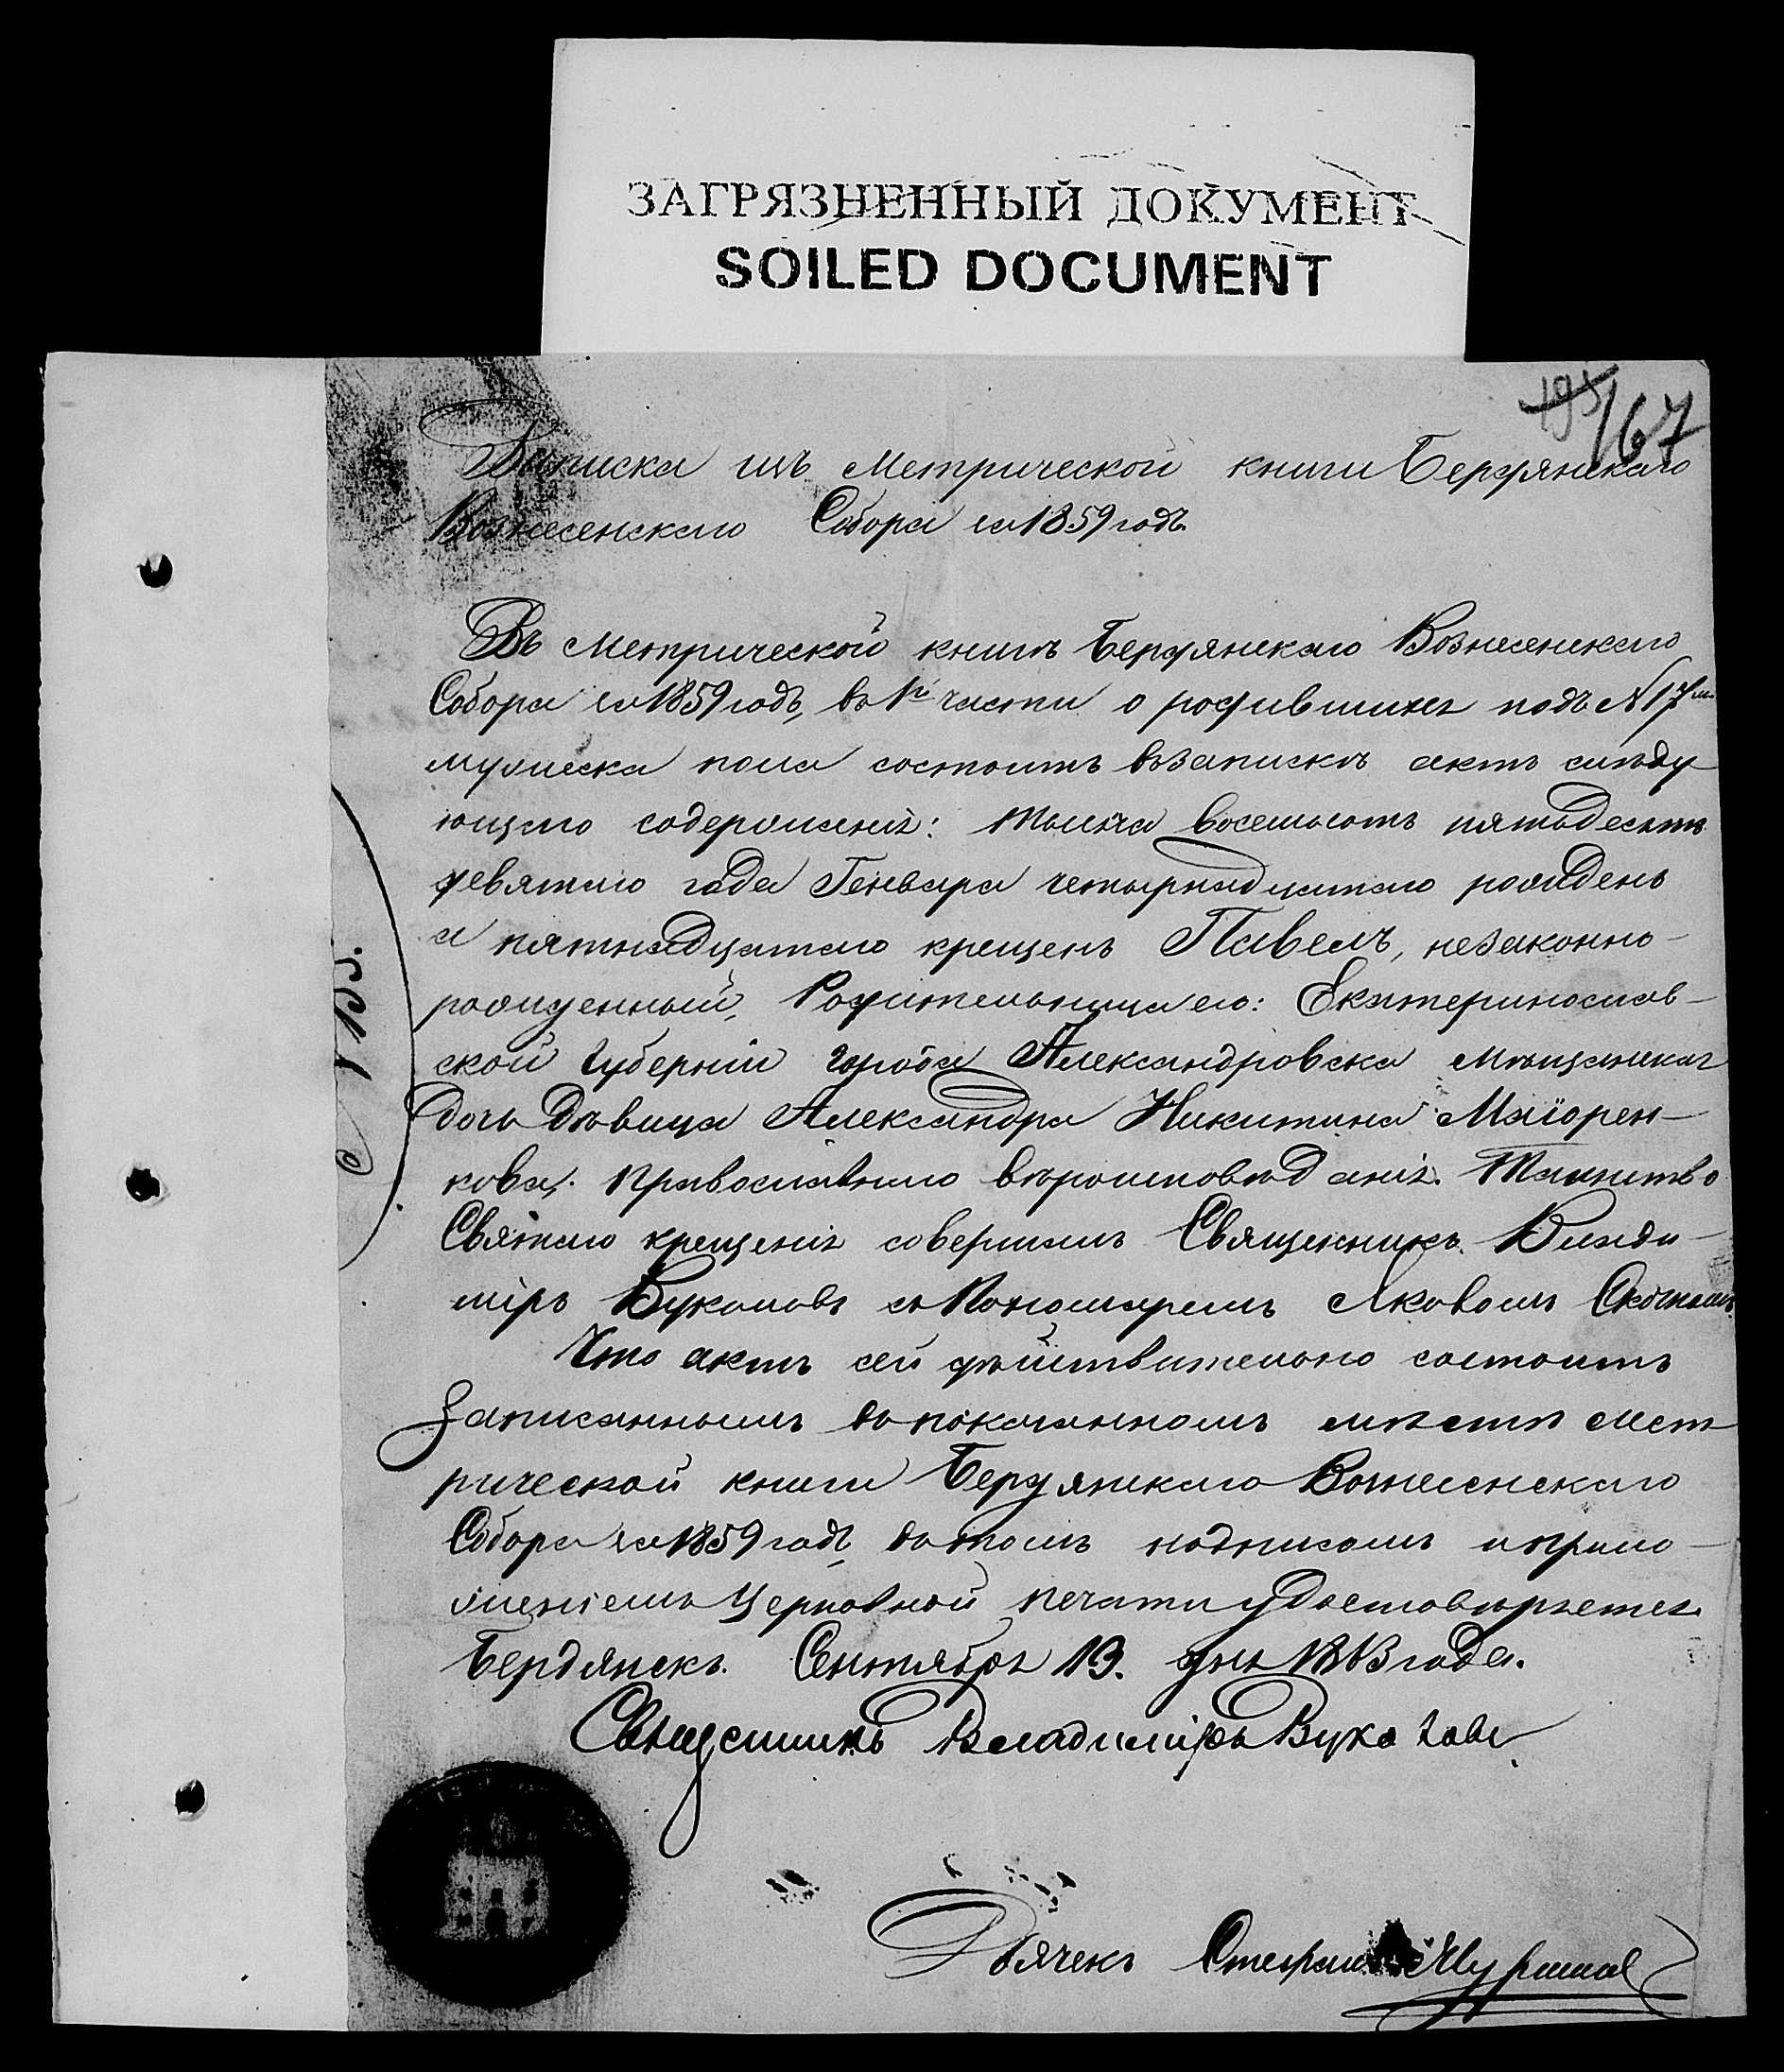 ЗАГРЯЗНЕННЫЙ ДОКУМЕНТ
SOILED DOCUMENT
195
167
Выписка изъ Метрической книги Бердянскаго
Вознесенскаго Собора за 1859 годъ.
Въ Метрической книгѣ Бердянскаго Вознесенскаго
Собора за 1859 годъ, въ 1й части о родившихся подъ № 17м
мужеска пола состоитъ въ запискѣ актъ слѣду
ющаго содержанія: Тысяча восемьсотъ пятьдесятъ
девятаго года Генваря четырнадцатаго рожденъ
а пятнадцатаго крещенъ Павелъ, незаконно-
рожденный, Родительница его: Екатеринослав-
ской Губерніи города Александровска мѣщанская
дочь Дѣвица Александра Никитина Маіорен-
кова, православнаго вѣроисповѣданія. Таинство
Святаго крещенія совершалъ Священникъ Влади-
міръ Вуколовъ съ Пономаремъ Яковомъ
Что актъ сей дѣйствительно состоитъ
записаннымъ въ показанномъ мѣстѣ Мет
рической книги Бердянскаго Вознесенскаго
Собора за 1859 годъ, въ томъ подписомъ и прило-
женіемъ Церковной печати удостовѣряется.
Бердянскъ. Сентября 13. дня года.
Священникъ Владиміръ Вуколовъ
Дьячекъ Стефанъ